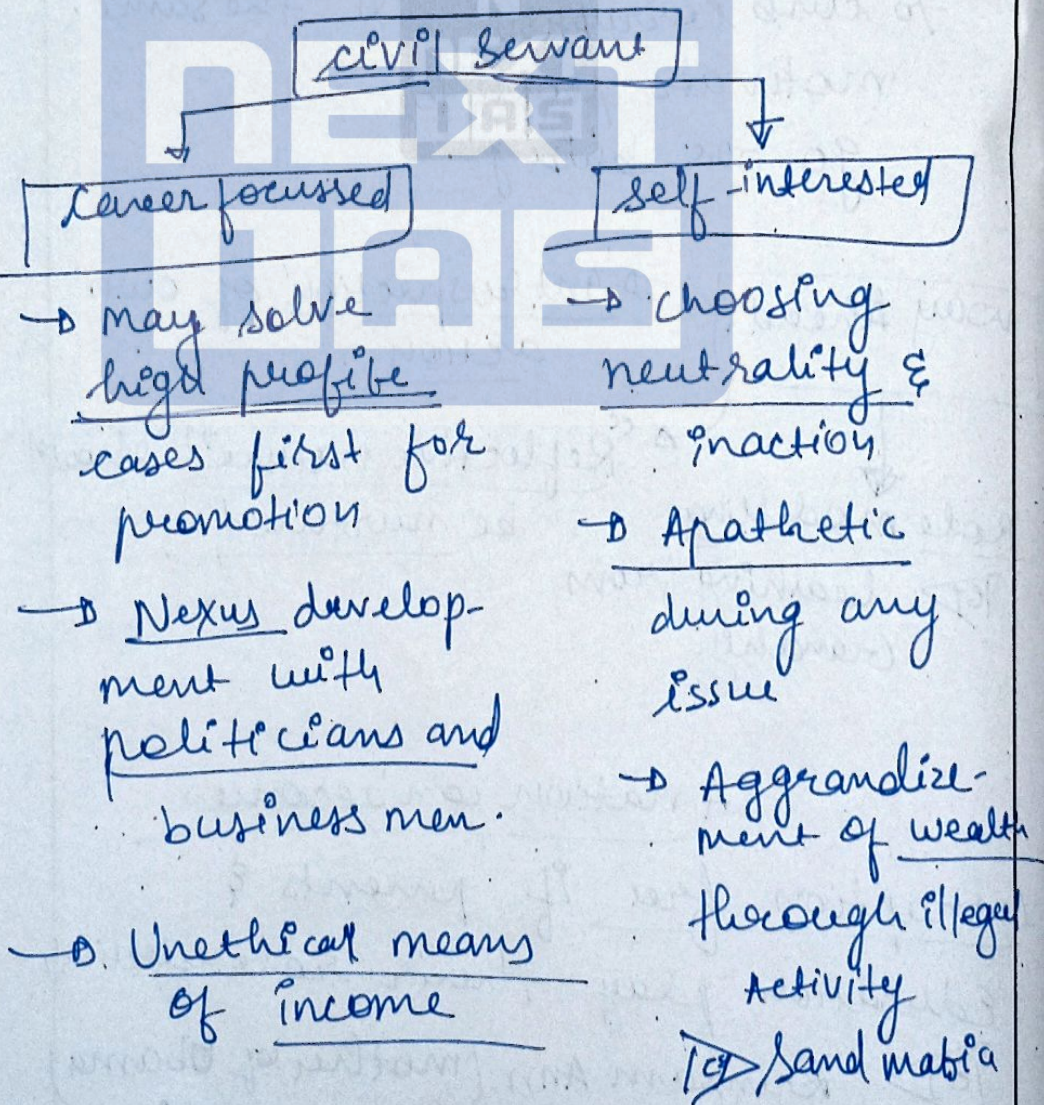 civil servant
NEXT
IAS
IAS
Career focussed
→ may solve
high profile
cases first for
promotion
→ Nexus develop-
ment with
politicians and
businessmen.
→ Unethical means
of income
self-interested
→ choosing
neutrality &
inaction
→ Apathetic
during any
issue
→ Aggrandize-
ment of wealth
through illegal
Activity
eg > Sand mafia